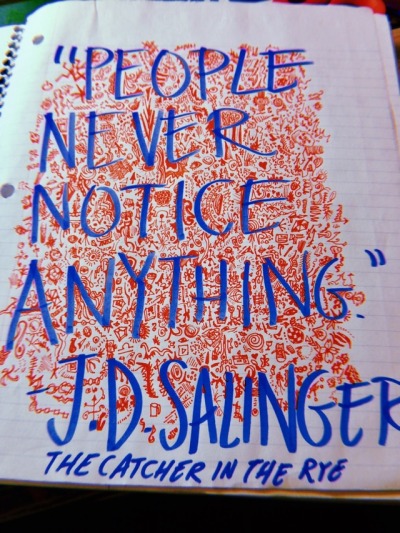 "PEOPLE
NEVER
NOTICE
ANYTHING."
-J.D. SALINGER
THE CATCHER IN THE RYE